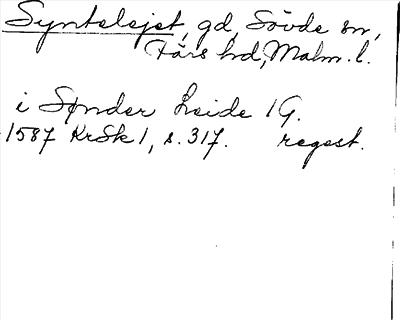 Syntslejet, gd, Sövde sn,
Färs hd, Malm. l.
i Sønder Leide 1 G.
1587 KrSk 1, s. 317. regest.